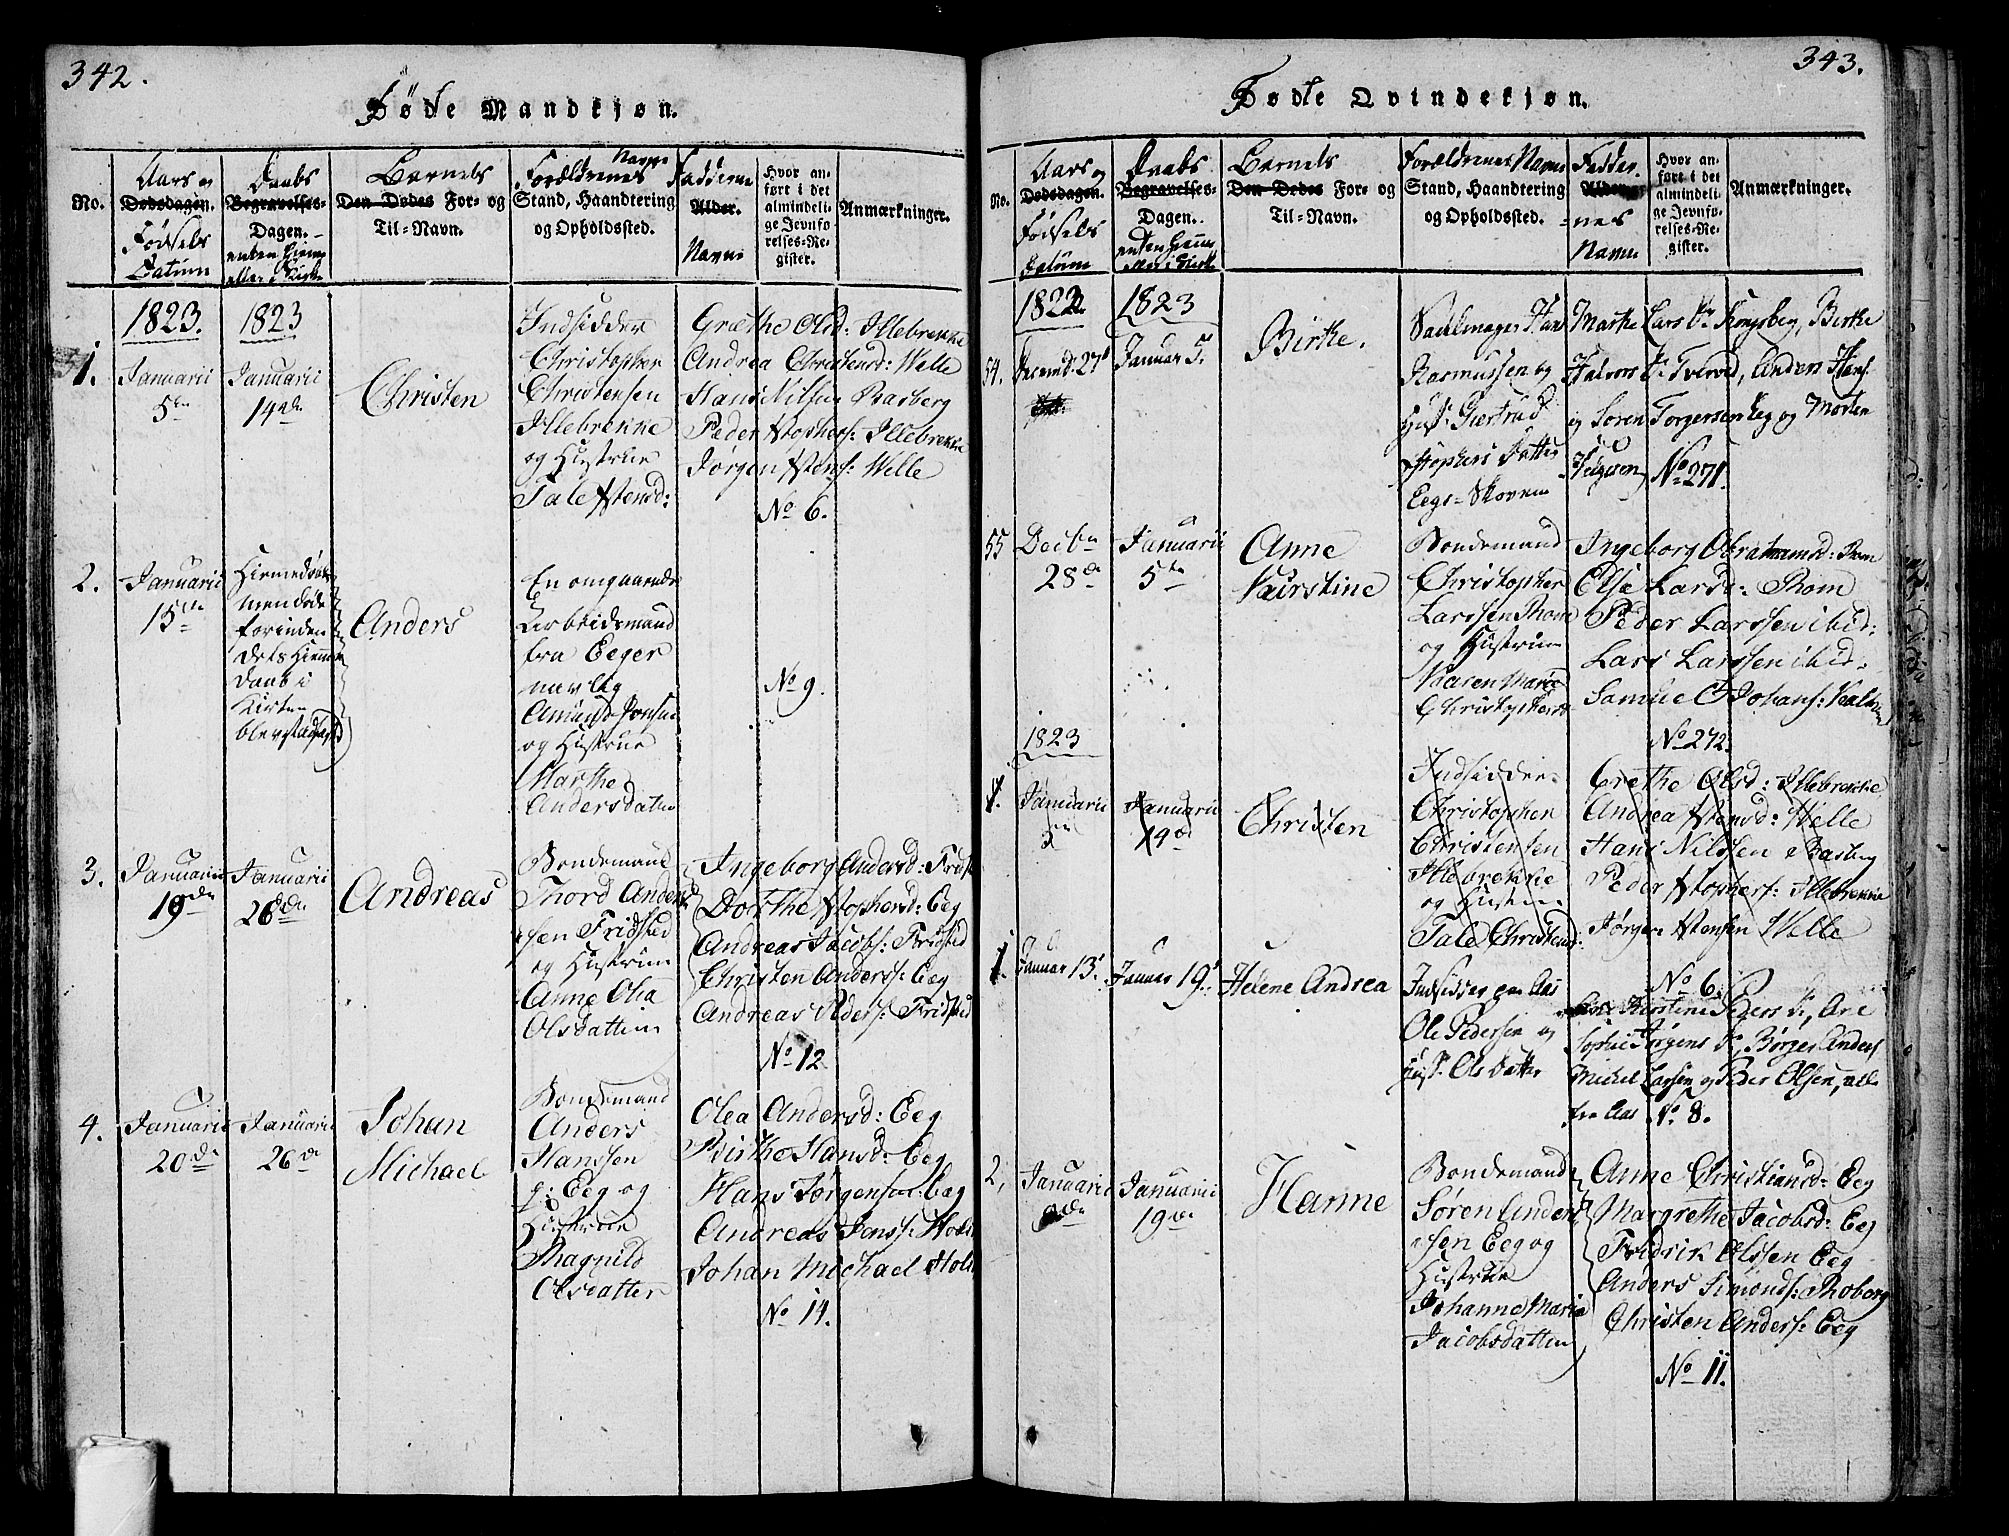 342.
Føde Mandkjøn.
No.
Aars og
Dødsdagen.
Fødsels
Datum
Daabs
Begravelses-
Dagen.
enten Hiemme
eller i Kirke
Barnets
Den Dødes For- og
Til-Navn.
Forældrenes Navne
Stand, Haandtering
og Opholdssted.
Faddernes
Alder.
Navne
Hvor an-
ført i det
almindeli-
ge Jevnfø-
relses-Re-
gister.
Anmærkninger.
1823.
1823
1.
Januarii
5te
Januarii
14de
Christen
Indsidder
Christopher
Christensen
Illebrekke
og Hustrue
Tale Xstensd:
Grethe Olsd: Illebrekke
Andrea Christensd: Welle
Hans Nilsen Basberg
Peder Xstophers: Illebrekke
Jørgen Xstens: Welle
No 6.
2.
Januarii
15de
Hiemedøbt
men døde
forinden
dets Hiemme
Daab i
Kirken
blev stadfæstet
Anders
En omgaaende
Arbeidsmand
fra Eeger
navnlig
Amund Jonsen
og Hustrue
Marthe
Andersdatter
No 9.
3.
Januarii
19de
Januarii
26de
Andreas
Bondemand
Thord Anders
sen Fridsted
og Hustrue
Anne Olia
Olsdatter
Ingeborg Andersd: Fridst
Dorthe Xstophersd: Eeg
Andreas Jacobs: Fridsted
Christen Anderss: Eeg
Andreas Peders: Fridsted
No 12
4.
Januarii
20de
Januarii
26de
Johan
Michael
Bondemand
Anders
Hanssen
p: Eeg og
Hustrue
Ragnild
Olsdatter
Olea Andersd: Eeg
Birthe Hansd: Eeg
Hans Jørgensen Eeg
Andreas Jenss: Holm
Johan Michael Holm
No 14.
343.
Fødte Qvindekjøn.
No.
Aars og
Dødsdagen.
Fødsels
Datum
Daabs
Begravelses-
Dagen.
enten Hiemme
eller i Kirke
Barnets
Den Dødes For- og
Til-Navn.
Forældrenes Navne
Stand, Haandtering
og Opholdssted.
Fadder-
Alder.
nes
Navne
Hvor an-
ført i det
almindeli-
ge Jevnfø-
relses-Re-
gister.
Anmærkninger.
1822
1823
54.
Decemb: 27
Januar 5.
Birthe.
Sadelmager Hans
Rasmussen og
Hust: Giertrud
Xstophers Datter
Eegs-Skoven
Marthe Lars Dr Kongsberg, Birthe
Halvors Dr Tveved, Anders Hans.
og Søren Torgersen Eeg og Morten
No 271.
55
Decbr
28de
Januarii
5te
Anne
Kirstine
Bondemand
Christopher
Larssen Rom
og Hustrue
Karen Marie
Christophersd
Ingeborg Abrahamsd: Rom
Else Larsd: Rom
Peder Larssen ibid:
Lars Larssen ibid.
Samuel Johans:
No 272.
1823
1.
Januarii
Januarii
19de
Christen
Indsidder
Christopher
Christensen
Illebrekke
og Hustrue
Tale Christensd:
Grethe Olsd: Illebrekke
Andrea Xstensd: Welle
Hans Nilssen Basberg
Peder Xstophers: Illebrekke
Jørgen Xstensen Welle
No 6.
1.
Januar 13.
Januar 19.
Helene Andrea
Indsidder paa Aas
Ole Pedersen og
Hust: Ols Datter
Kirstine Peders Dr, Ane
Sophie Jørgens Dr, Børger Anders
Michel Larsen og Peder Olsen, alle
fra Aas No 8.
2,
Januarii
Januarii
19de
Hanne
Bondemand
Søren Anders
sen Eeg og
Hustrue
Johanne Maria
Jacobsdatter
Anne Christiansd: Eeg
Margrethe Jacobsd: Eeg
Fridrik Olssen Eeg
Anders Simonds: Roberg
Christen Anderss: Eeg
No 11.